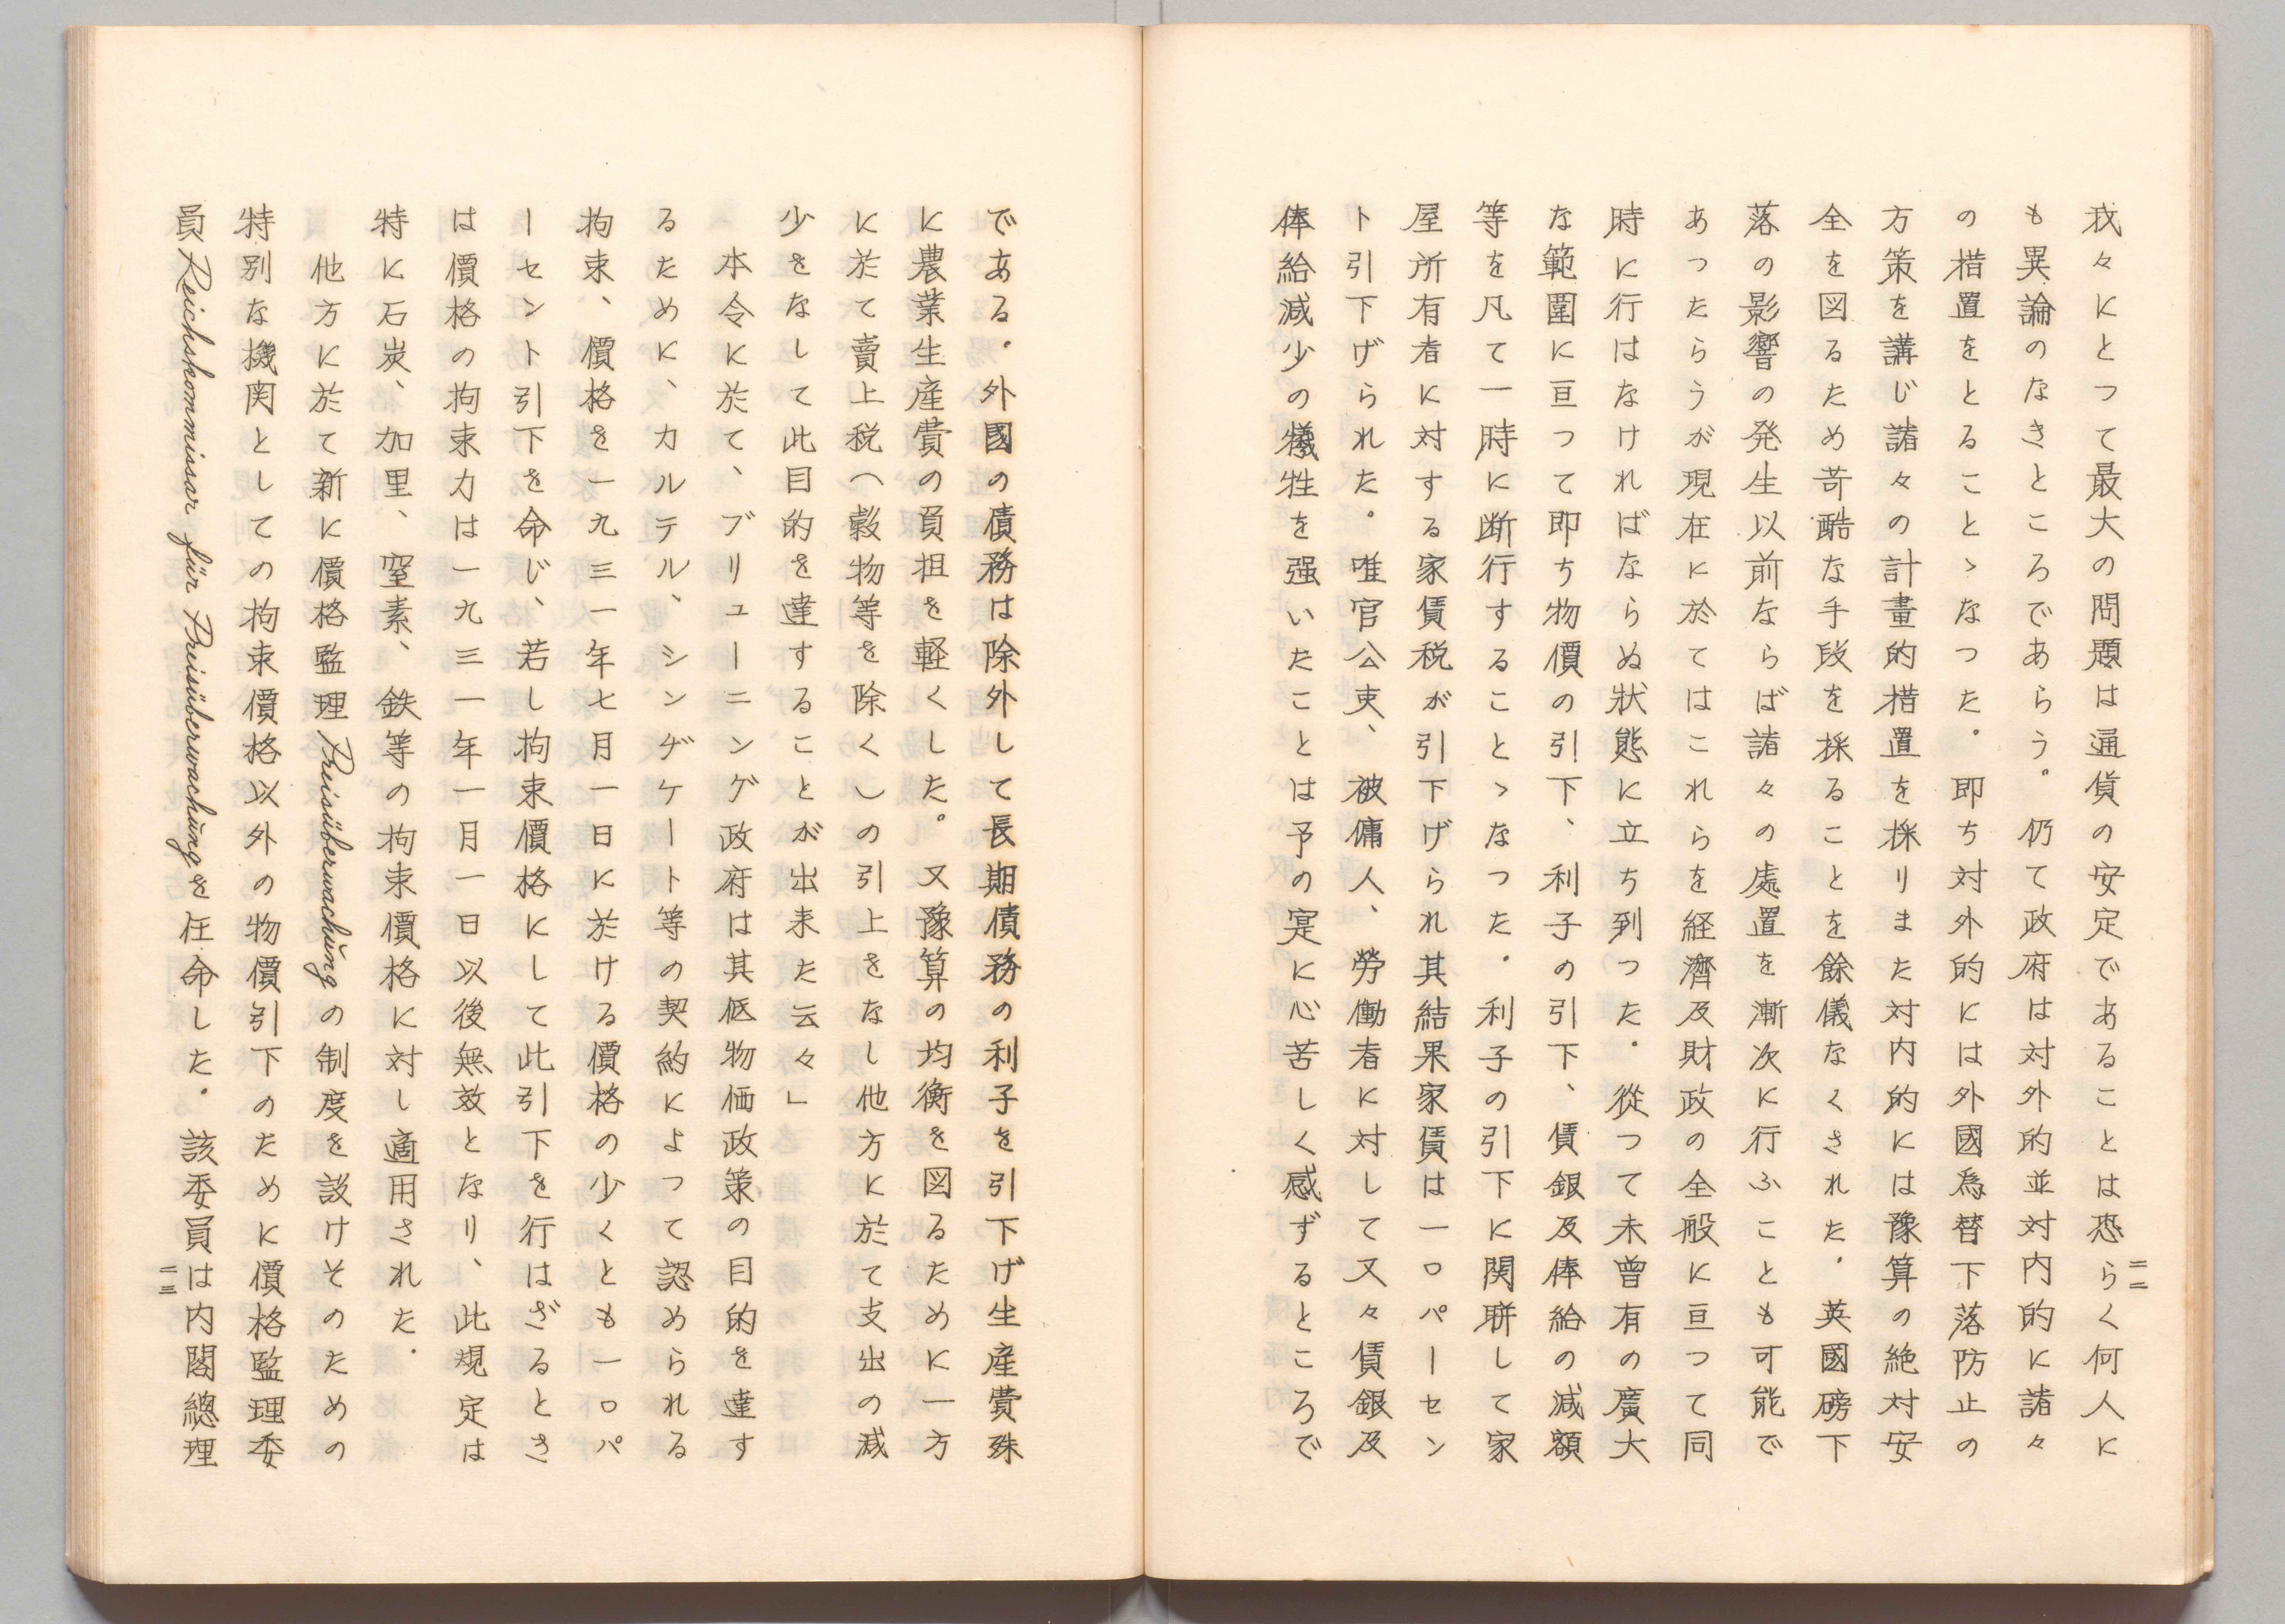 我々にとつて最大の問題は通貨の安定であることは恐らく何人に
も異論のなきところであらう。仍て政府は対外的並対内的に諸々
の措置をとることゝなつた。即ち対外的には外國為替下落防止の
方策を講じ諸々の計畫的措置を採りまた対内的には豫算の絶対安
全を図るため苛酷な手段を採ることを餘儀なくされた。英國磅下
落の影響の発生以前ならば諸々の處置を漸次に行ふことも可能で
あつたらうが現在に於てはこれらを経濟及財政の全般に亘つて同
時に行はなければならぬ状態に立ち到つた。從つて未曾有の廣大
な範圍に亘つて即ち物價の引下、利子の引下、賃銀及俸給の減額
等を凡て一時に断行することゝなつた。利子の引下に関聨して家
屋所有者に対する家賃税が引下げられ其結果家賃は一〇パーセン
ト引下げられた。唯官公吏、被傭人、勞働者に対して又々賃銀及
俸給減少の犠牲を强いたことは予の寔に心苦しく感ずるところで
二二
である。外國の債務は除外して長期債務の利子を引下げ生産費殊
に農業生産費の負担を軽くした。又豫算の均衡を図るために一方
に於て賣上税(穀物等を除く)の引上をなし他方に於て支出の減
少をなして此目的を達することが出来た云々」
本令に於て、ブリューニング政府は其低物価政策の目的を達す
るために、カルテル、シンヂケート等の契約によつて認められる
拘束、價格を一九三一年七月一日に於ける價格の少くとも一〇パ
ーセント引下を命じ、若し拘束價格にして此引下を行はざるとき
は價格の拘束力は一九三一年一月一日以後無效となり、此規定は
特に石炭、加里、窒素、鉄等の拘束價格に対し適用された。
他方に於て新に價格監理Preisüberwachŭngの制度を設けそのための
特別な機関としての拘束價格以外の物價引下のために價格監理委
員Reichskommissar für Preisüberwachŭngを任命した。該委員は内閣總理
二三